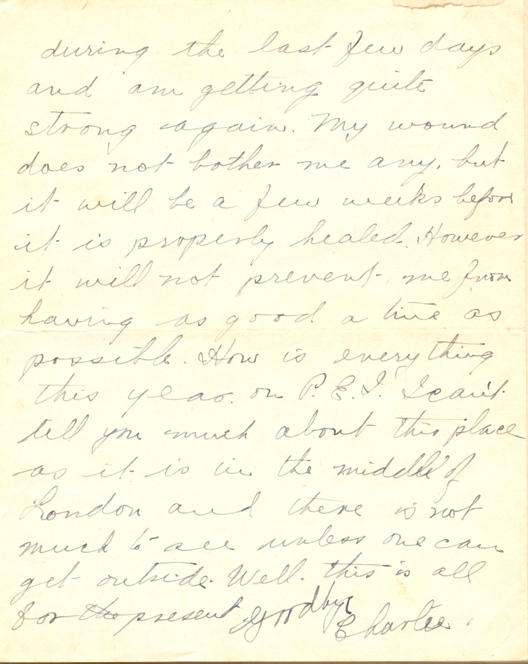 during the last few days
and am getting quite
strong again. My wound
does not bother me any, but
it will be a few weeks before
it is properly healed. However
it will not prevent me from
having as good a time as
possible. How is everything
this year on P.E.I. I can't
tell you much about this place
as it is in the middle of
London and there is not
much to see unless one can
get outside. Well. this is all
for the present Goodbye
Charlie.